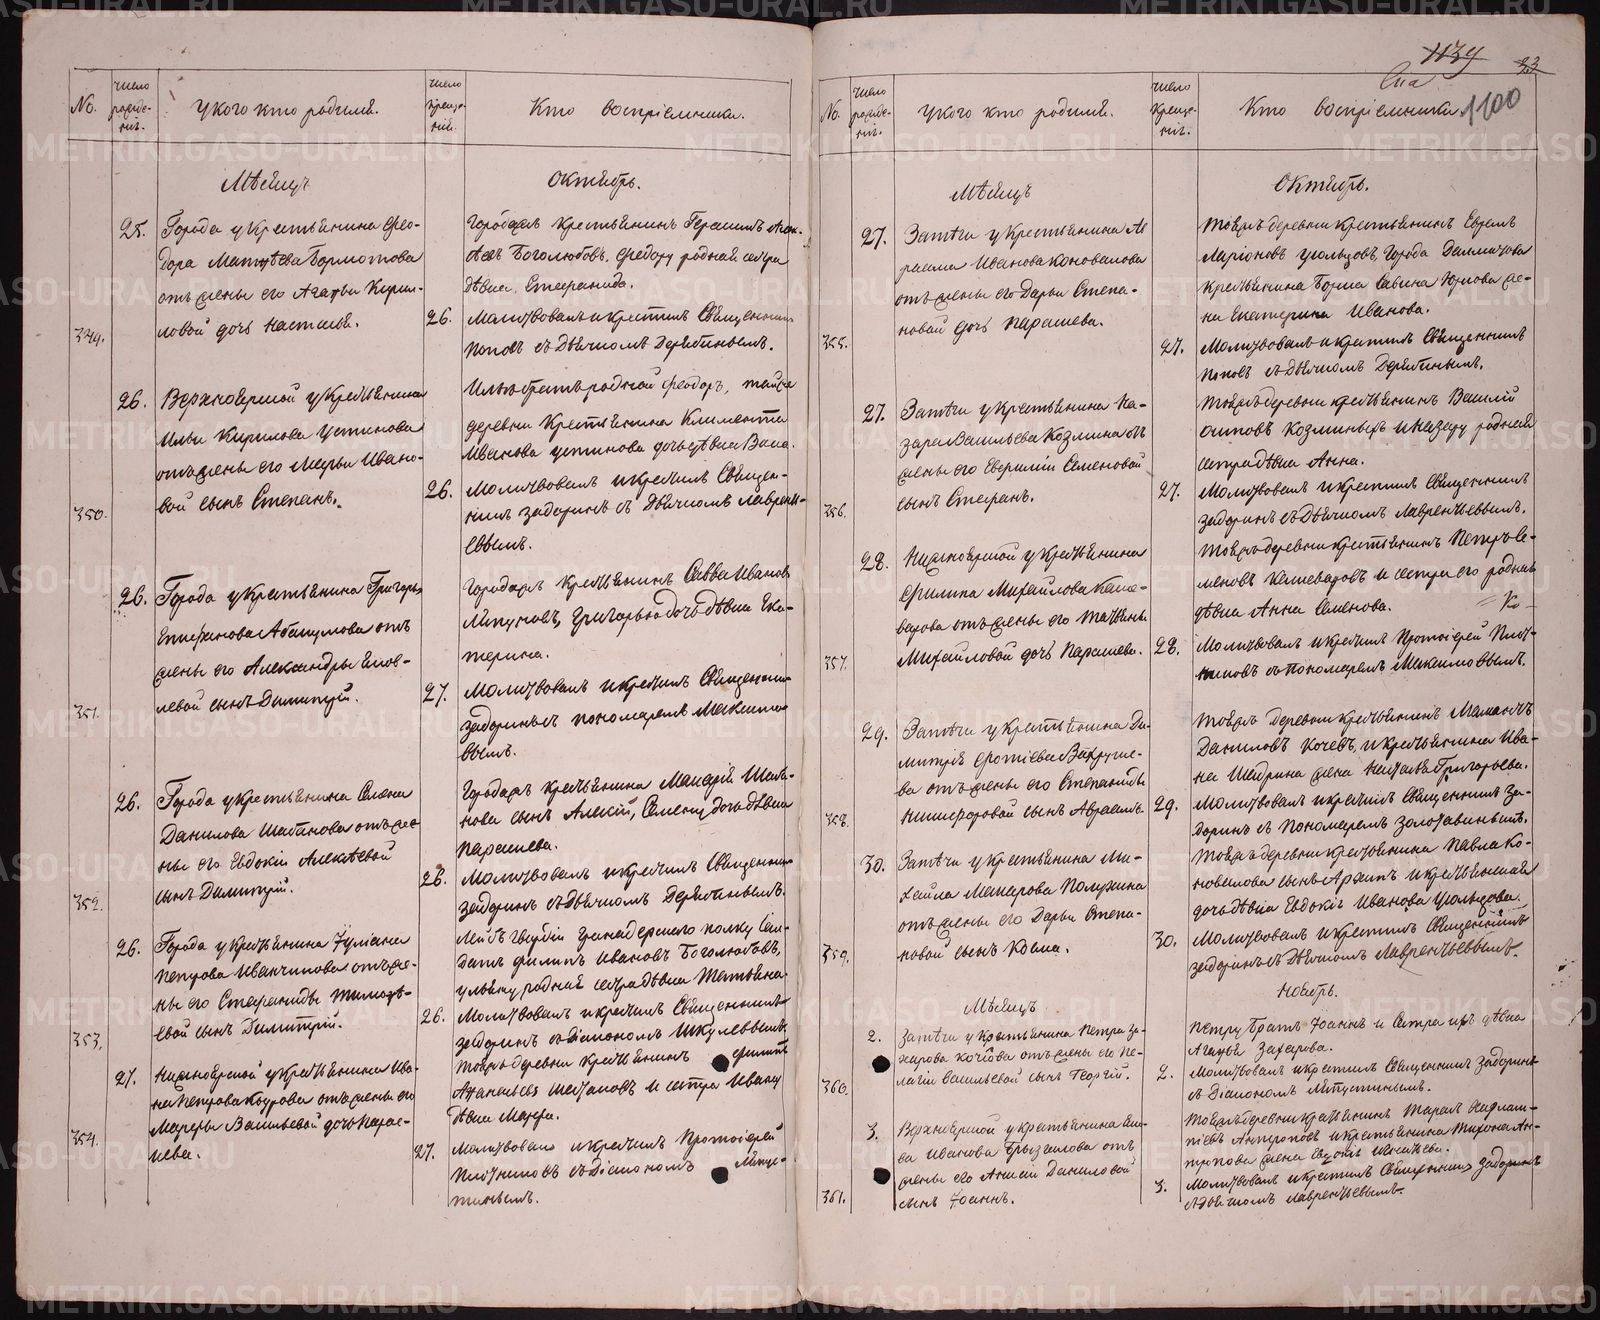 1139
33
Сна
1100
No.
Число рожде-нія.
У кого кто родился.
Число Креще-ній.
Кто воспріемники.
Мѣсяцъ
Октябрь.
25.
Города у Крестьянина Ѳео-
дора Матвѣева Бормотова
отъ жены его Агаѳьи Кирил-
ловой дочь Настасья.
349.
Городски крестьянинъ Герасимъ
Боголюбовъ, Ѳедору родная сестра
дѣвица Стефанида.
26.
Молитвовалъ и крестилъ Священникъ
Поповъ съ Дьячкомъ Дерябинымъ.
26.
Верхноярской у Крестьянина
Ильи Кирилова Устинова
отъ жены его Марьи Ивано-
вой сынъ Степанъ.
350.
Ильѣ братъ родной Ѳеодоръ, тойже
деревни Крестьянина Климента
Иванова Устинова дочь дѣвица
26.
Молитвовалъ и крестилъ Священ-
никъ Задоринъ съ Дьячкомъ Лаврент-
ьевымъ.
26.
Города у Крестьянина Григорья
Епифанова Абакумова отъ
жены его Александры
левой сынъ Димитрій.
351.
Крестьянинъ Савва Ивановъ
Григорью дочь дѣвица Ека-
терина.
27.
Молитвовалъ и крестилъ Священникъ
Задоринъ съ пономаремъ Максимо-
вымъ.
26.
Города у крестьянина Семена
Данилова Шатнова отъ же-
ны его Евдокіи Алексѣевой
сынъ Димитрій.
352.
крестьянина
нова сынъ Алексій, Семену дочь дѣвица
Парасцева.
26.
Молитвовалъ и крестилъ Священникъ
Задоринъ съ Дьячкомъ Дерябинымъ.
26.
Города у Крестьянина Іуліана
Петрова Иванчикова отъ же-
ны его Стефаниды Тимоѳѣ-
евой сынъ Димитрій.
353.
Лейбъ Гвардіи Гранадерского полку Сол-
датъ Филипъ Ивановъ Боголюбовъ,
Ульяну родная сестра дѣвица Татьяна.
26.
Молитвовалъ и крестилъ Священникъ
Задоринъ съ Діакономъ
27.
Нижноярской у Крестьянина Ива-
на Петрова отъ жены его
Марѳы Васильевой дочь Парас-
цева.
354.
Тойже деревни крестьянинъ Филипъ
и сестра Ивану
дѣвица Марѳа.
27.
Молитвовалъ и крестилъ Протоіерей
Плотниковъ съ Діакономъ Липус-
тинымъ.
No.
Число рожде-нія.
У кого кто родился.
Число Креще-нія.
Кто воспріемники.
Мѣсяцъ
Октябрь.
27.
Затечи у Крестьянина Ав
раама Иванова Коновалова
отъ жены его Дарьи Степа-
новой дочь Парасцева.
355.
Тойже деревни крестьянинъ Ефремъ
Ларіоновъ Усольцовъ, Города Далматова
крестьянина Бориса Савина жe-
на Екатерина Иванова.
27.
Молитвовалъ и крестилъ Священникъ
Поповъ съ Дьячкомъ Дерябинымъ.
27.
Затечи у крестьянина На-
зара Васильева Козмина отъ
жены его Евфиміи Семеновой
сынъ Стефанъ.
356.
Тойже деревни крестьянинъ Василій
Осиповъ Козминыхъ и Назару родная
сестра дѣвица Анна.
27.
Молитвовалъ и крестилъ Священникъ
Задоринъ съ Дьячкомъ Лаврентьевымъ.
28.
Нижноярской у Крестьянина
Филипа Михайлова
отъ жены его Татьяны
Михайловой дочь Парасцева.
357.
Тойже деревни крестьянинъ Петръ Се-
меновъ и сестра его родная
дѣвица Анна Семенова.
28.
Молитвовалъ и крестилъ Протоіерей Плот-
никовъ съ Пономаремъ Максимовымъ.
29.
Затечи у Крестьянина Ди-
митрія Фотіева
ва отъ жены его Степаниды
Никифоровой сынъ Авраамъ.
358.
Тойже деревни крестьянинъ Мамантъ
Даниловъ Кочевъ, и крестьянина Ива-
на Шадрина жена Наталья Григорьева.
29.
Молитвовалъ и крестилъ Священникъ За-
доринъ съ Пономаремъ Золотавинымъ.
30.
Затечи у крестьянина Ми-
хайла Макарова Полухина
отъ жены его Дарьи Степа-
новой сынъ Козма.
359.
Тойже деревни крестьянина Павла Ко-
новалова сынъ Архипъ и крестьянская
дочь дѣвица Евдокія Иванова Усольцова.
30.
Молитвовалъ и крестилъ Священникъ
Задоринъ съ Дьячкомъ Лаврентьевымъ.
Мѣсяцъ
Ноябрь.
2.
Затечи у Крестьянина Петра За-
харова Кочева отъ жены его Пе-
лагіи Васильевой сынъ Георгій.
360.
Петру братъ Іоаннъ и Сестра ихъ дѣвица
Агаѳья Захарова.
2.
Молитвовалъ и крестилъ Священникъ Задоринъ
съ Діакономъ Липустинымъ.
3.
Верхноярской у крестьянина
ва Иванова Брызгалова отъ
жены его Анисіи Даниловой
сынъ Іоаннъ.
361.
Тойже деревни Крестьянинъ Тарасъ
Антроповъ и крестьянина Тихона Ан-
тропова жена Евдокія
3.
Молитвовалъ и крестилъ Священникъ Задоринъ
съ Дьячкомъ Лаврентьевымъ.
METRIKI.GASO-URAL.RU